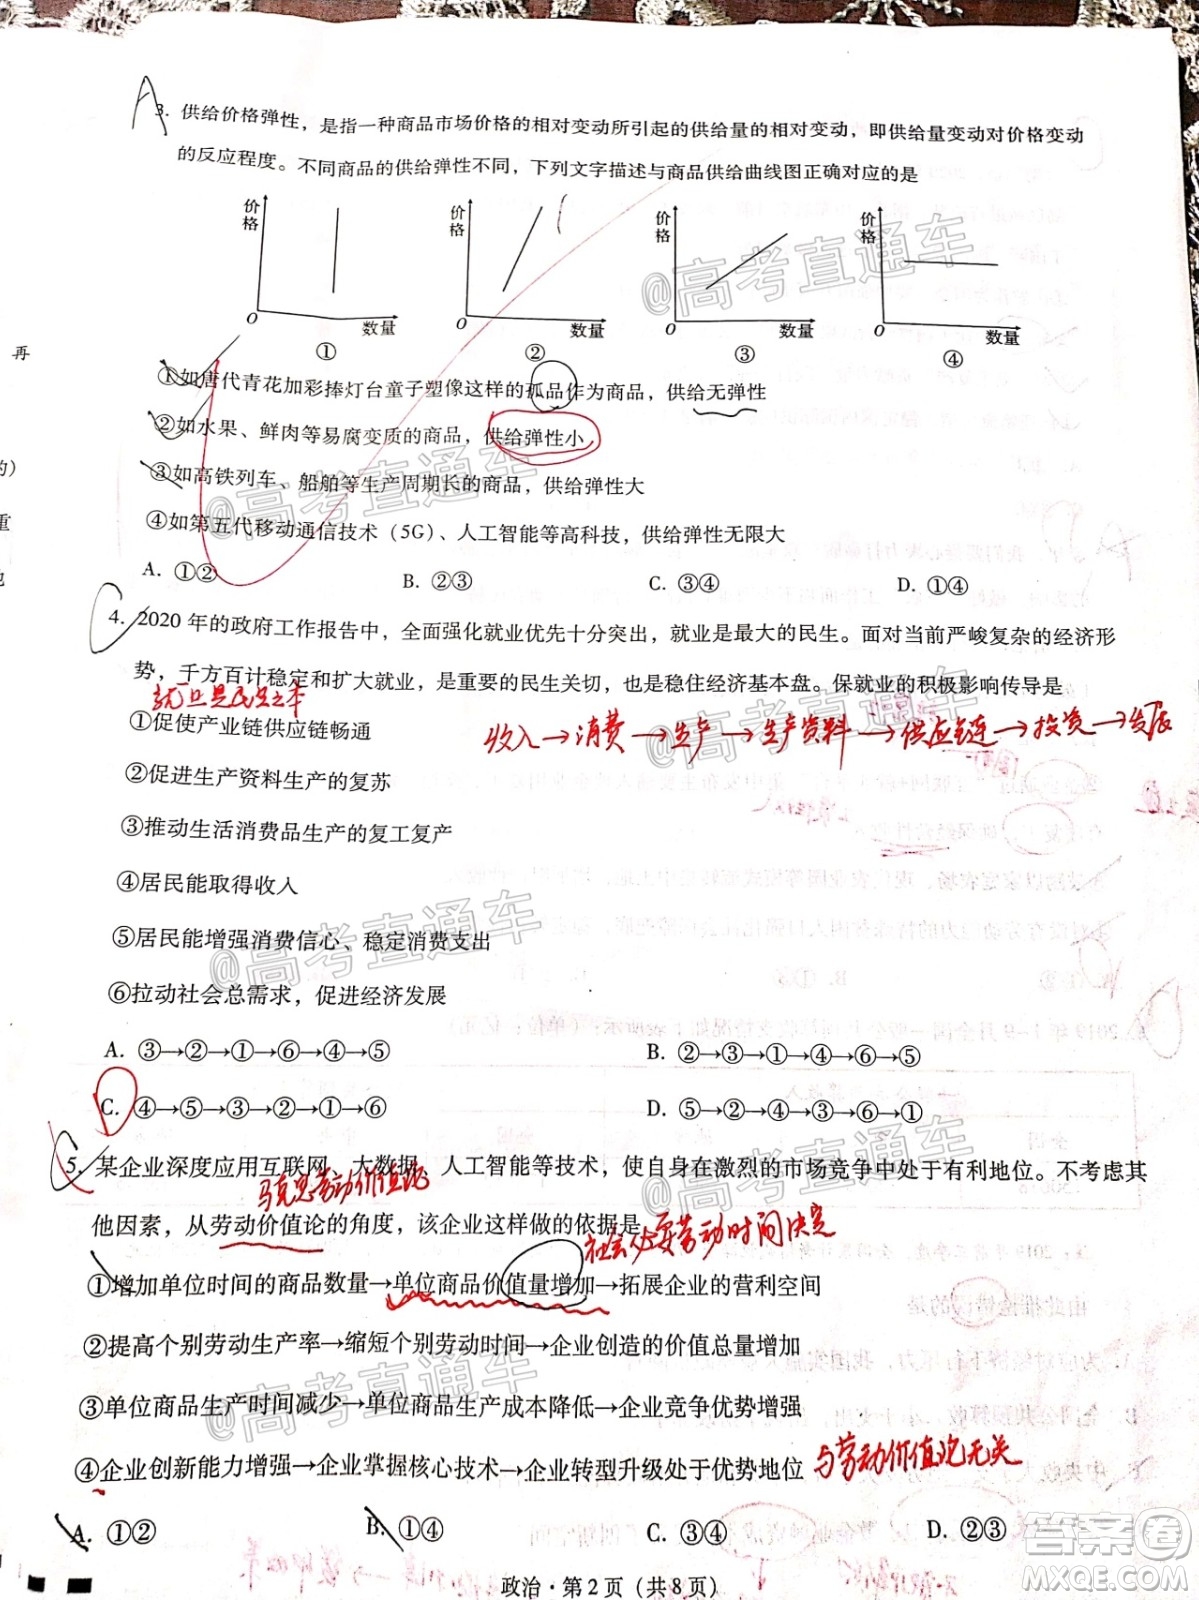 A
3. 供给价格弹性，是指一种商品市场价格的相对变动所引起的供给量的相对变动，即供给量变动对价格变动
的反应程度。不同商品的供给弹性不同，下列文字描述与商品供给曲线图正确对应的是
价格 价格 价格 价格
O 数量 O 数量 O 数量 O 数量
① ② ③ ④
再
①如唐代青花加彩捧灯台童子塑像这样的孤品作为商品，供给无弹性
②如水果、鲜肉等易腐变质的商品，供给弹性小
的）
③如高铁列车、船舶等生产周期长的商品，供给弹性大
重
④如第五代移动通信技术（5G）、人工智能等高科技，供给弹性无限大
A. ①② B. ②③ C. ③④ D. ①④
C
4. 2020 年的政府工作报告中，全面强化就业优先十分突出，就业是最大的民生。面对当前严峻复杂的经济形
势，千方百计稳定和扩大就业，是重要的民生关切，也是稳住经济基本盘。保就业的积极影响传导是
就业是民生之本
①促使产业链供应链畅通
收入→消费→生产→生产资料→供应链→投资→发展
②促进生产资料生产的复苏
③推动生活消费品生产的复工复产
④居民能取得收入
⑤居民能增强消费信心、稳定消费支出
⑥拉动社会总需求，促进经济发展
A. ③→②→①→⑥→④→⑤ B. ②→③→①→④→⑥→⑤
C. ④→⑤→③→②→①→⑥ D. ⑤→②→④→③→⑥→①
C
5. 某企业深度应用互联网、大数据、人工智能等技术，使自身在激烈的市场竞争中处于有利地位。不考虑其
马克思劳动价值论
他因素，从劳动价值论的角度，该企业这样做的依据是
社会必要劳动时间决定
①增加单位时间的商品数量→单位商品价值量增加→拓展企业的营利空间
②提高个别劳动生产率→缩短个别劳动时间→企业创造的价值总量增加
③单位商品生产时间减少→单位商品生产成本降低→企业竞争优势增强
④企业创新能力增强→企业掌握核心技术→企业转型升级处于优势地位
与劳动价值论无关
A. ①② B. ①④ C. ③④ D. ②③
政治·第 2 页（共 8 页）
@高考直通车
@高考直通车
@高考直通车
@高考直通车
@高考直通车
@高考直通车
答案圈
MXQE.COM